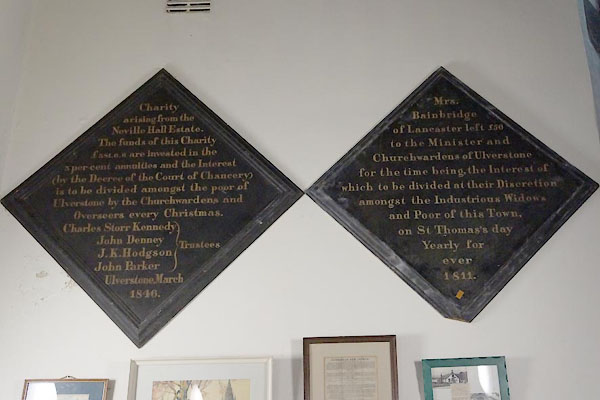 Charity
arising from the
Neville Hall Estate.
The funds of this Charity
are invested in the
3 percent annuities and the Interest
(by the Decree of the Court of Chancery)
is to be divided amongst the poor of
Ulverstone by the Churchwardens and
Overseers every Christmas.
Charles Storr Kennedy
John Denney
J.K. Hodgson
John Parker
Trustees
Ulverstone, March
1846.
Mrs.
Bainbridge
of Lancaster left
to the Minister and
Churchwardens of Ulverstone
for the time being, the Interest of
which to be divided at their Discretion
amongst the Industrious Widows
and Poor of this Town,
on St Thomas's day
Yearly for
ever
1811.